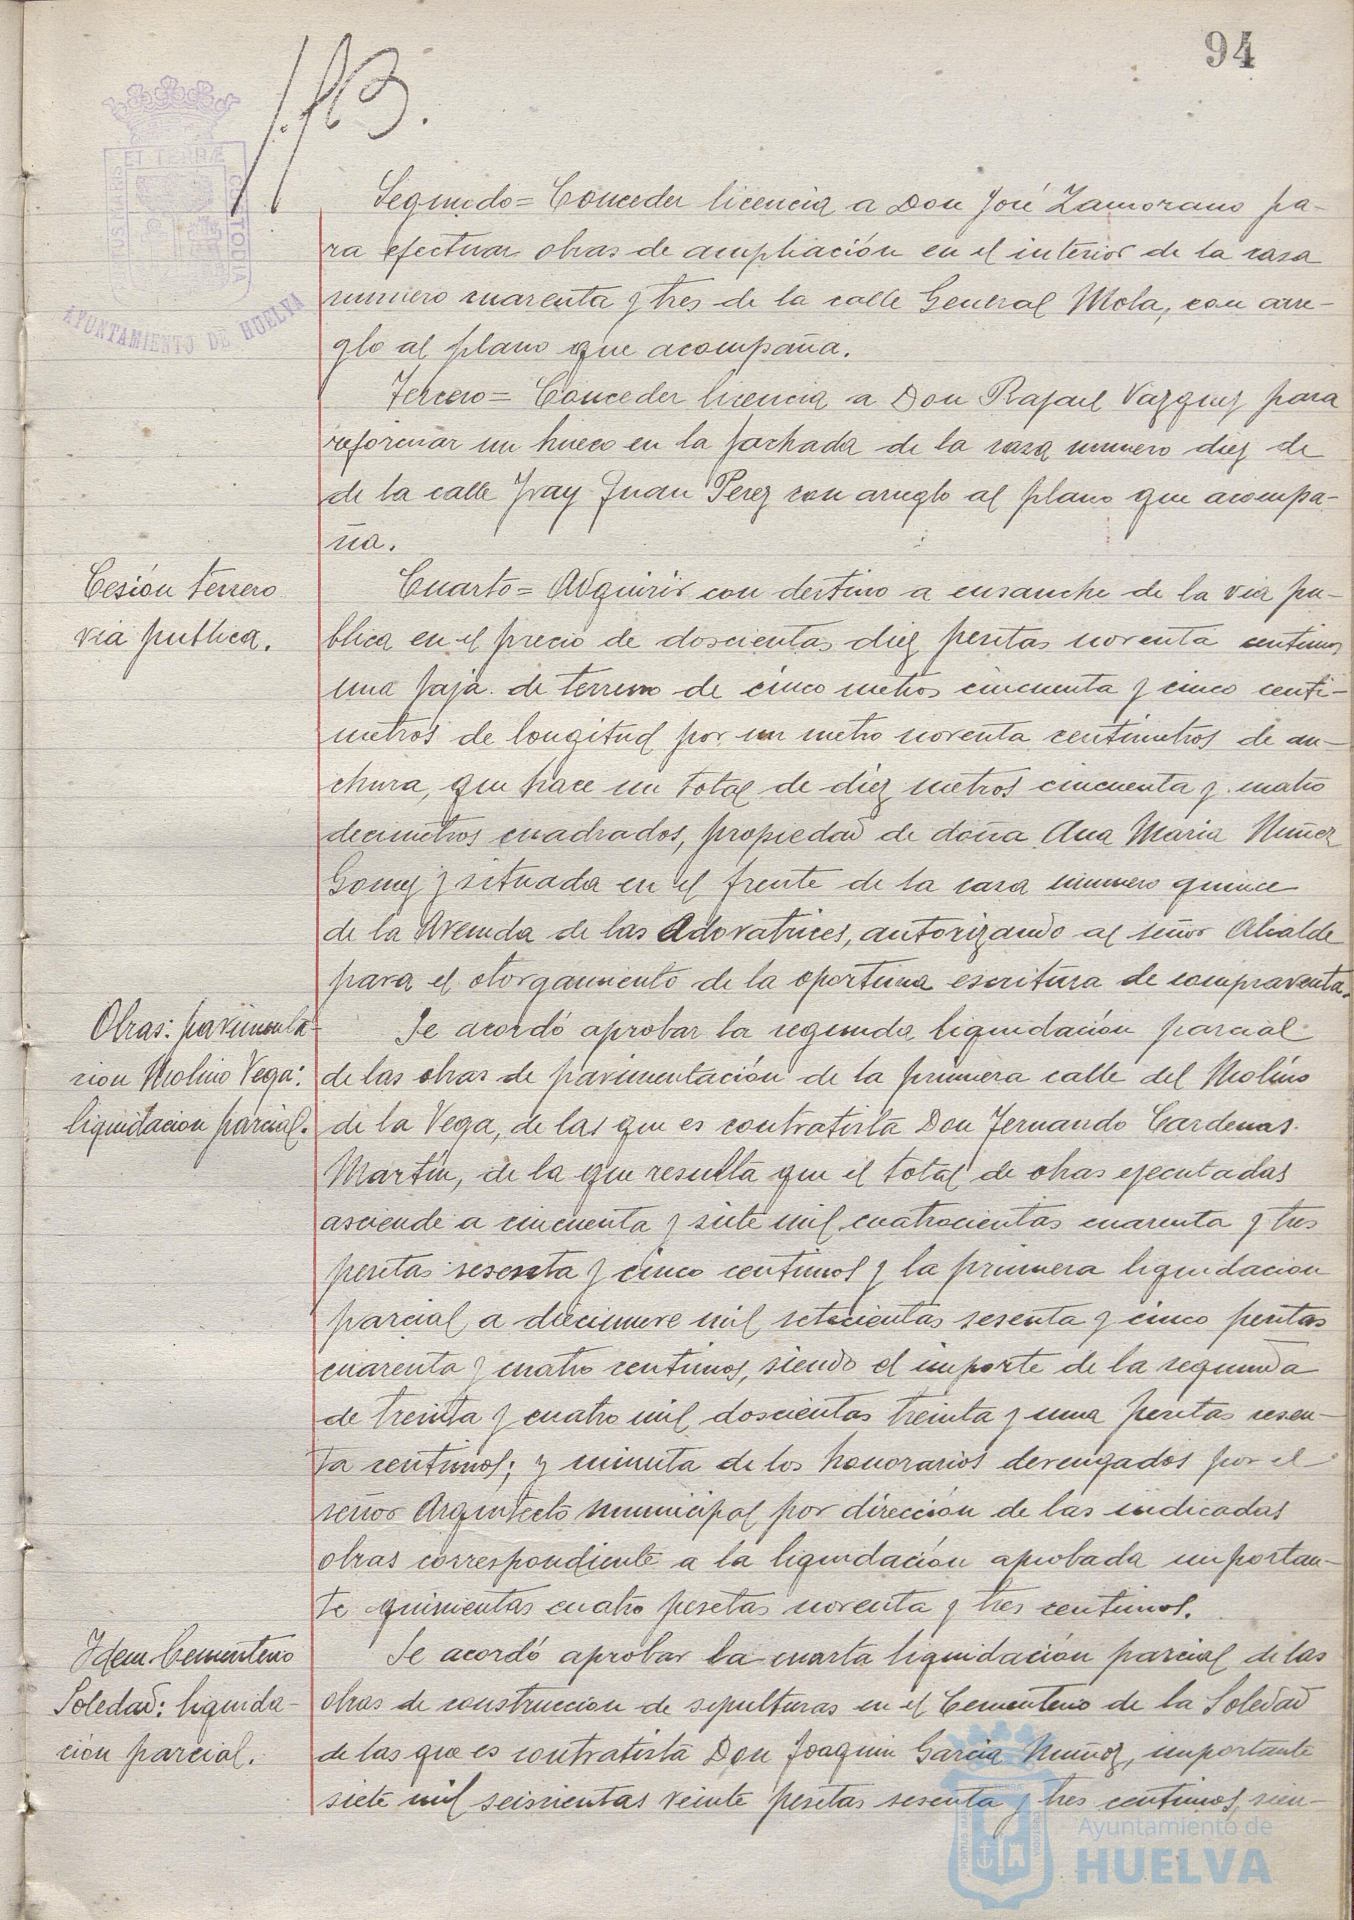 94
ET TERRÆ
US MARIS
CUSTODIA
AYUNTAMIENTO DE HUELVA
Segundo= Conceder licencia a Don José Zamorano pa-
ra efectuar obras de ampliación en el interior de la casa
numero cuarenta y tres de la calle General Mola, con arre-
glo al plano que acompaña.
Tercero= Conceder licencia a Don Rafael Vazquez para
reformar un hueco en la fachada de la casa numero diez de
de la calle Fray Juan Perez con arreglo al plano que acompa-
ña.
Cesión terreno
via publica.
Cuarto= Adquirir con destino a ensanche de la via pu-
blica en el precio de doscientas diez pesetas noventa centimos
una faja de terreno de cinco metros cincuenta y cinco centi-
metros de longitud por un metro noventa centimetros de an-
chura, que hace un total de diez metros cincuenta y cuatro
decimetros cuadrados, propiedad de doña Ana Maria Nuñez
Gomez y situada en el frente de la casa numero quince
de la Avenida de las Adoratrices, autorizando al señor Alcalde
para el otorgamiento de la oportuna escritura de compraventa.
Obras: pavimenta-
cion Molino Vega:
liquidacion parcial.
Se acordó aprobar la segunda liquidación parcial
de las obras de pavimentación de la primera calle del Molino
de la Vega, de las que es contratista Don Fernando Cardenas
Martin, de la que resulta que el total de obras ejecutadas
asciende a cincuenta y siete mil cuatrocientas cuarenta y tres
pesetas sesenta y cinco centimos y la primera liquidacion
parcial a diecinueve mil setecientas sesenta y cinco pesetas
cuarenta y cuatro centimos, siendo el importe de la segunda
de treinta y cuatro mil doscientas treinta y una pesetas sesen-
ta centimos; y minuta de los honorarios devengados por el
señor Arquitecto municipal por dirección de las indicadas
obras correspondiente a la liquidación aprobada importan-
te quinientas cuatro pesetas noventa y tres centimos.
Idem Cementerio
Soledad: liquida-
ción parcial.
Se acordó aprobar la cuarta liquidación parcial de las
obras de construccion de sepulturas en el Cementerio de la Soledad
de las que es contratista Don Joaquin Garcia Nuñez, importante
siete mil seiscientas veinte pesetas sesenta y tres centimos, sien-
Ayuntamiento de
HUELVA